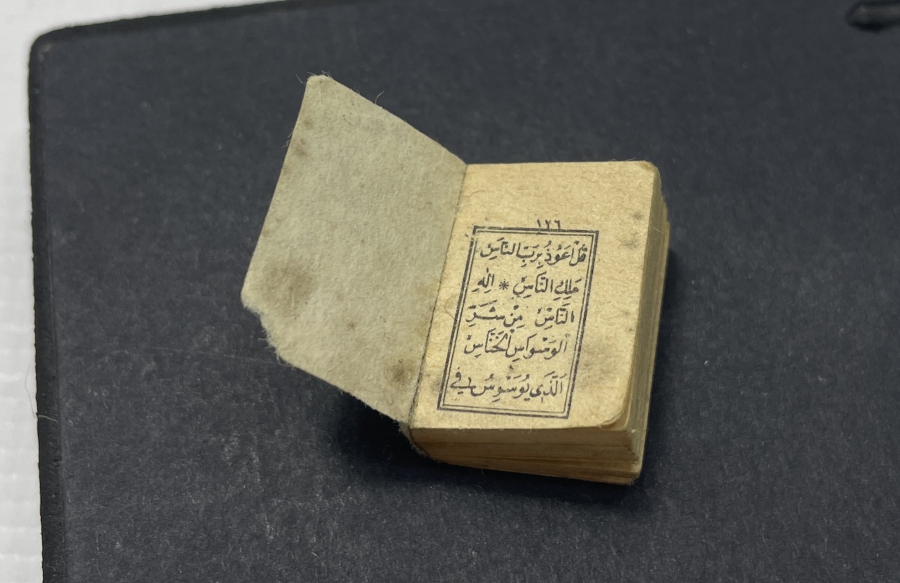 ١٢٦
قُلْ اَعُوذُ بِرَبِّ النَّاسِ
مَلِكِ النَّاسِ * اِلٰهِ
النَّاسِ مِنْ شَرِّ
الْوَسْوَاسِ الْخَنَّاسِ
اَلَّذِى يُوَسْوِسُ فِى